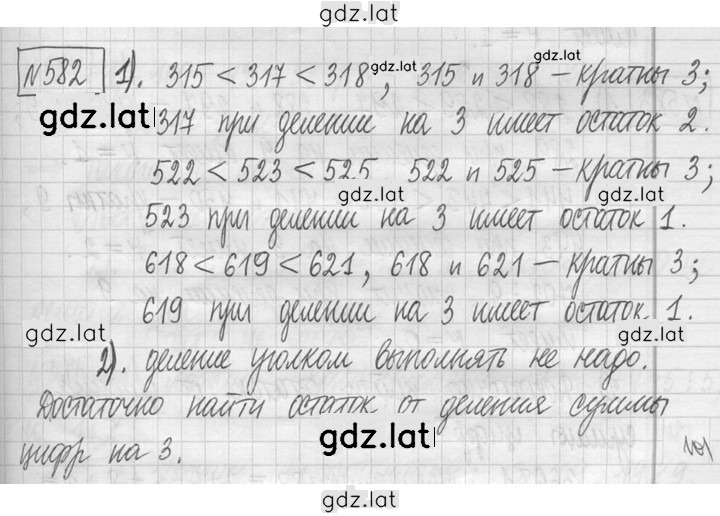 gdz.lat
N582 1). 315 < 317 < 318, 315 и 318 – кратны 3;
gdz.lat
gdz.lat
gdz.lat
317 при делении на 3 имеет остаток 2.
522 < 523 < 525 522 и 525 – кратны 3;
gdz.lat
gdz.lat
523 при делении на 3 имеет остаток 1.
618 < 619 < 621, 618 и 621 – кратны 3;
619 при делении на 3 имеет остаток 1.
gdz.lat
gdz.lat
2). деление уголком выполнять не надо.
Достаточно найти остаток от деления суммы
цифр на 3.
gdz.lat
gdz.lat